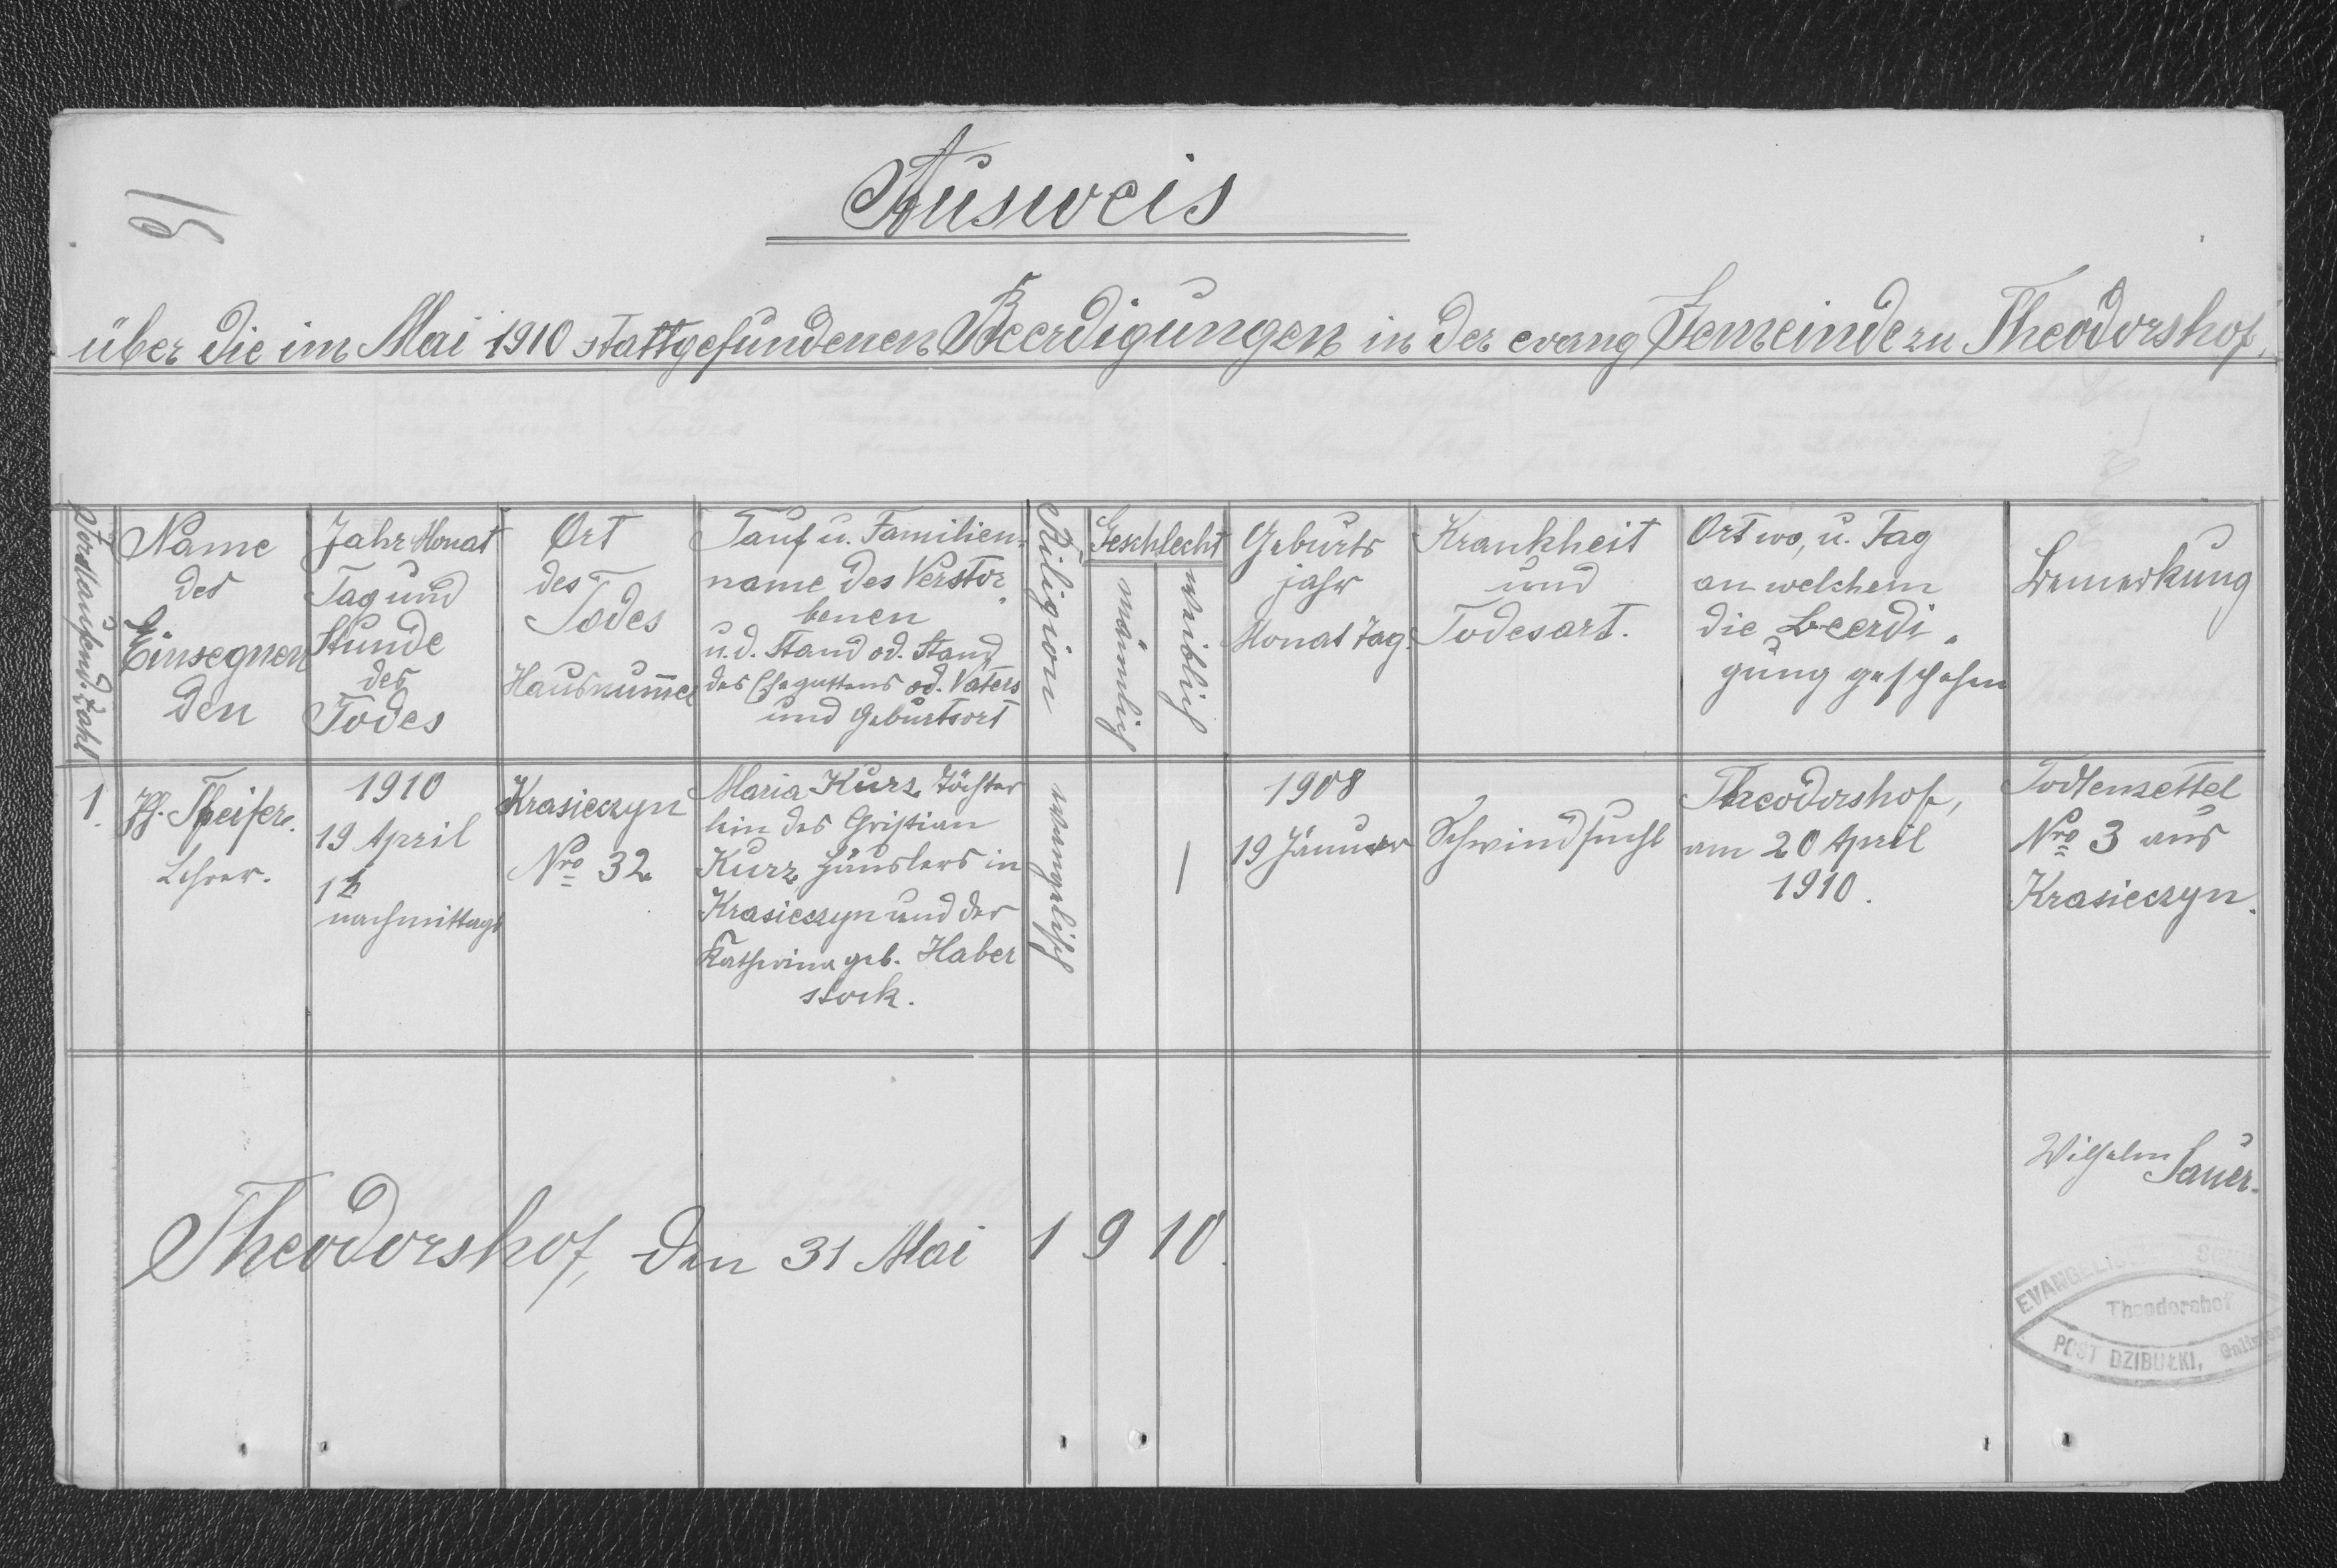 15
Ausweis
über die im Mai 1910 stattgefundenen Beerdigungen in der evang Gemeinde zu Theodorshof.
Fortlaufend. Zahl
Name
des
Einsegnen
den
Jahr Monat
Tag und
Stunde
des
Todes
Ort
des
Todes
Hausnummer
Tauf u. Familien-
name des Verstor-
benen
u. d. Stand od. Stand
des Ehegattens od. Vaters
und Geburtsort
Religion
Geschlecht
männlich
weiblich
Geburts
jahr
Monat Tag.
Krankheit
und
Todesart.
Ort wo, u. Tag
an welchem
die Beerdi-
gung geschehen
Bemerkung
1.
Lehrer.
1910
19 April
1h
nachmittags
Krasieczyn
Nro 32
Maria Kurz Töchter
lein des Christian
Kurz Häuslers in
Krasieczyn und der
Katherina geb. Haber
stock.
evangelisch
1
1908
19 Jänner
Schwindsucht
Theodorshof,
am 20 April
1910.
Todtenzettel
Nro 3 aus
Krasieczyn.
Wilhelm Sauer.
Theodorshof, den 31 Mai 1910.
EVANGELISCHE
Theodorshof
POST DZIBUŁKI, Galizien